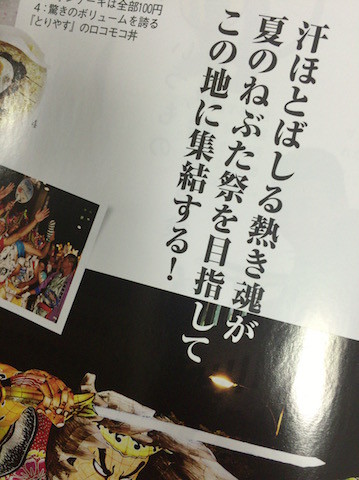 ケーキは全部100円
4:驚きのボリュームを誇る
『とりやす』のロコモコ丼
4
汗ほとばしる熱き魂が
夏のねぶた祭を目指して
この地に集結する!